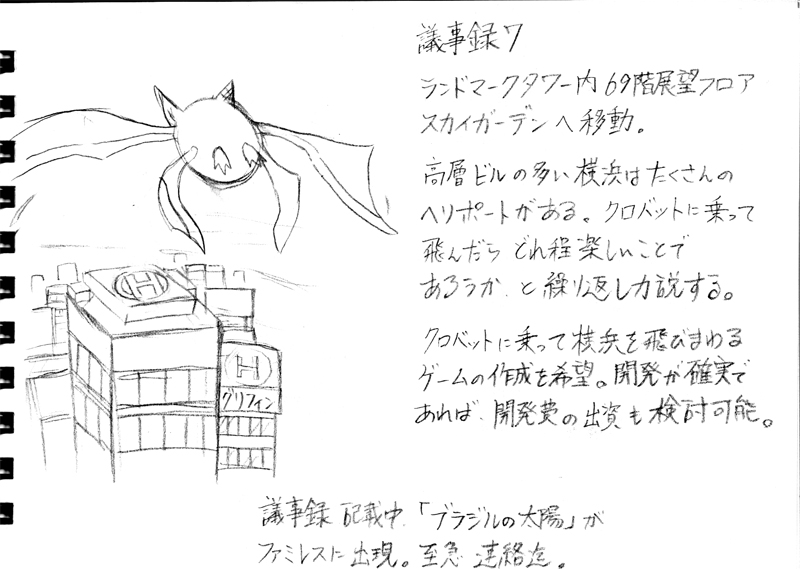 議事録7
ランドマークタワー内 69階展望フロア
スカイガーデンへ移動。
高層ビルの多い横浜はたくさんの
ヘリポートがある。クロバットに乗って
飛んだら どれ程楽しいことで
あろうか と繰り返し力説する。
クロバットに乗って横浜を飛びまわる
ゲームの作成を希望。開発が確実で
あれば、開発費の出資も検討可能。
H
H
グリフィン
議事録 記載中、「ブラジルの太陽」が
ファミレスに出現。至急 連絡迄。